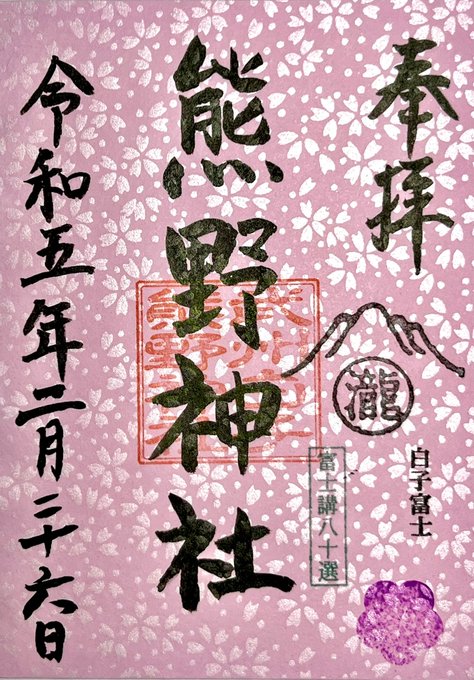 奉拝
瀧
白子富士
富士講八十選
熊野神社
令和五年二月二十六日